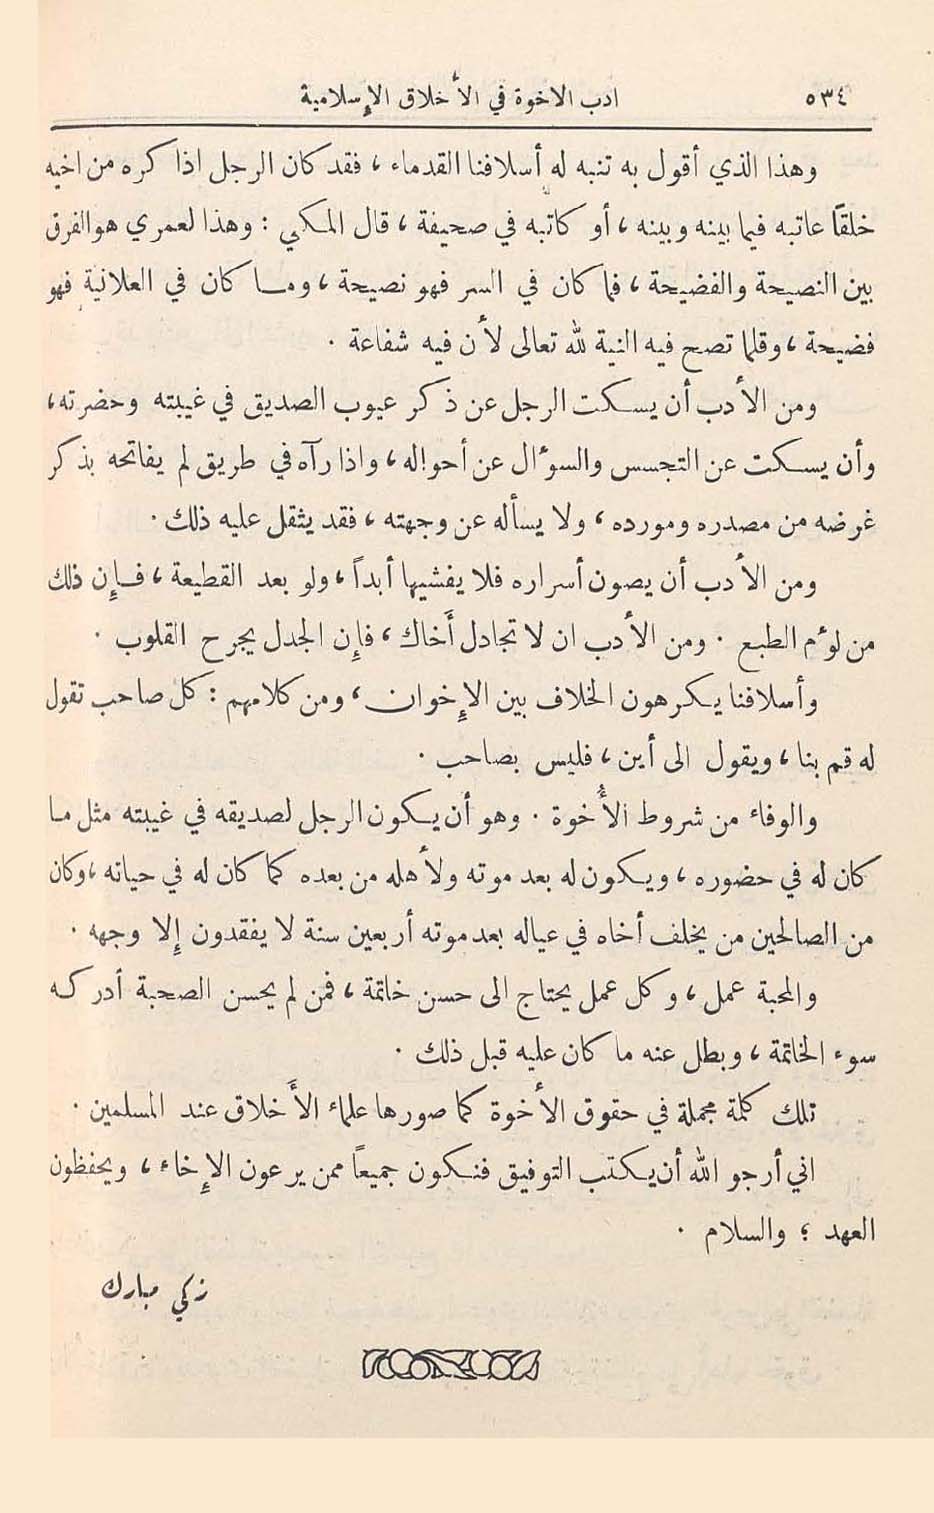 ٥٣٤ ادب الاخوة في الأخلاق الإسلامية
وهذا الذي أقول به تنبه له أسلافنا القدماء ، فقد كان الرجل اذا كره من اخيه
خلقاً عاتبه فيما بينه وبينه ، أو كاتبه في صحيفة ، قال المكي : وهذا لعمري هو الفرق
بين النصيحة والفضيحة ، فما كان في السر فهو نصيحة ، وما كان في العلانية فهو
فضيحة ، وقلما تصح فيه النية لله تعالى لأن فيه شفاعة .
ومن الأدب أن يسكت الرجل عن ذكر عيوب الصديق في غيبته وحضرته ،
وأن يسكت عن التجسس والسوءال عن أحواله ، واذا رآه في طريق لم يفاتحه بذكر
غرضه من مصدره ومورده ، ولا يسأله عن وجهته ، فقد يثقل عليه ذلك .
ومن الأدب أن يصون أسراره فلا يفشيها أبداً ، ولو بعد القطيعة ، فإن ذلك
من لوءم الطبع . ومن الأدب ان لا تجادل أخاك ، فإن الجدل يجرح القلوب .
وأسلافنا يكرهون الخلاف بين الإخوان ، ومن كلامهم : كل صاحب تقول
له قم بنا ، ويقول الى أين ، فليس بصاحب .
والوفاء من شروط الأخوة . وهو أن يكون الرجل لصديقه في غيبته مثل ما
كان له في حضوره ، ويكون له بعد موته ولأهله من بعده كما كان له في حياته ، وكان
من الصالحين من يخلف أخاه في عياله بعد موته أربعين سنة لا يفقدون إلا وجهه .
والمحبة عمل ، وكل عمل يحتاج الى حسن خاتمة ، فمن لم يحسن الصحبة أدركه
سوء الخاتمة ، وبطل عنه ما كان عليه قبل ذلك .
تلك كلمة مجملة في حقوق الأخوة كما صورها علماء الأخلاق عند المسلمين .
اني أرجو الله أن يكتب التوفيق فنكون جميعاً ممن يرعون الإخاء ، ويحفظون
العهد ؛ والسلام .
زكي مبارك